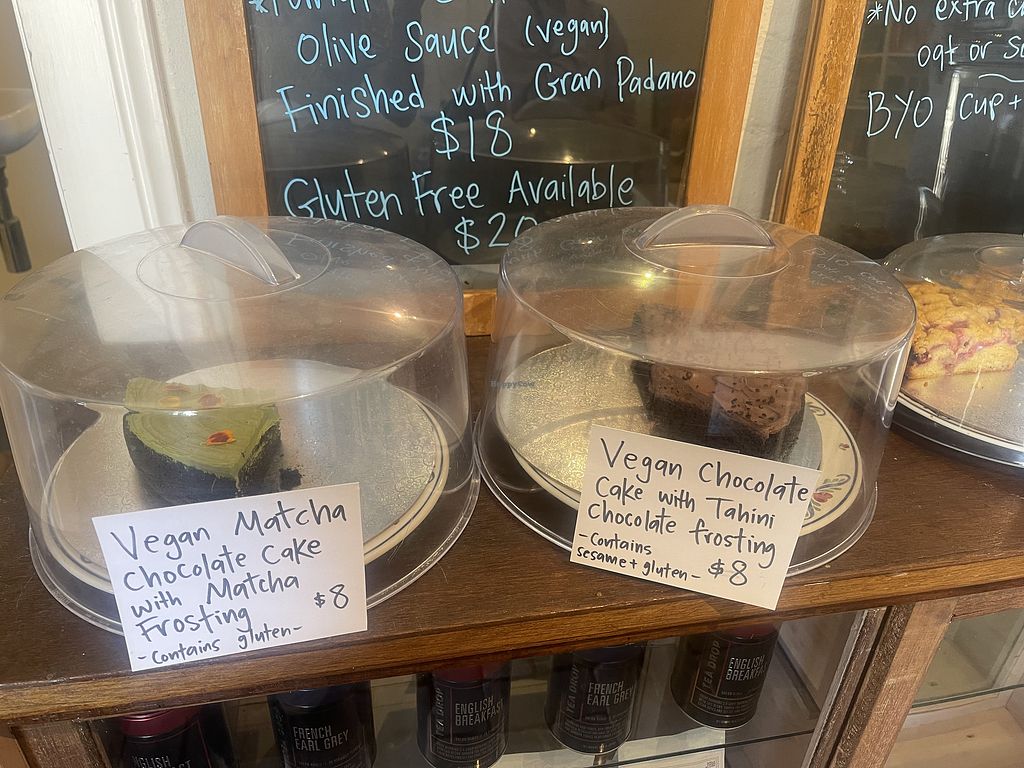 Olive Sauce (vegan)
Finished with Gran Padano
$18
Gluten Free Available
$20
*No extra
oat or
BYO cup +
HappyCow
Vegan Matcha
Chocolate Cake
with Matcha
Frosting $8
- Contains gluten -
Vegan Chocolate
Cake with Tahini
Chocolate frosting
- Contains
sesame + gluten - $8
TEA DROP
ENGLISH
BREAKFAST
FRENCH
EARL GREY
TEA DROP
ENGLISH
BREAKFAST
FRENCH
EARL GREY